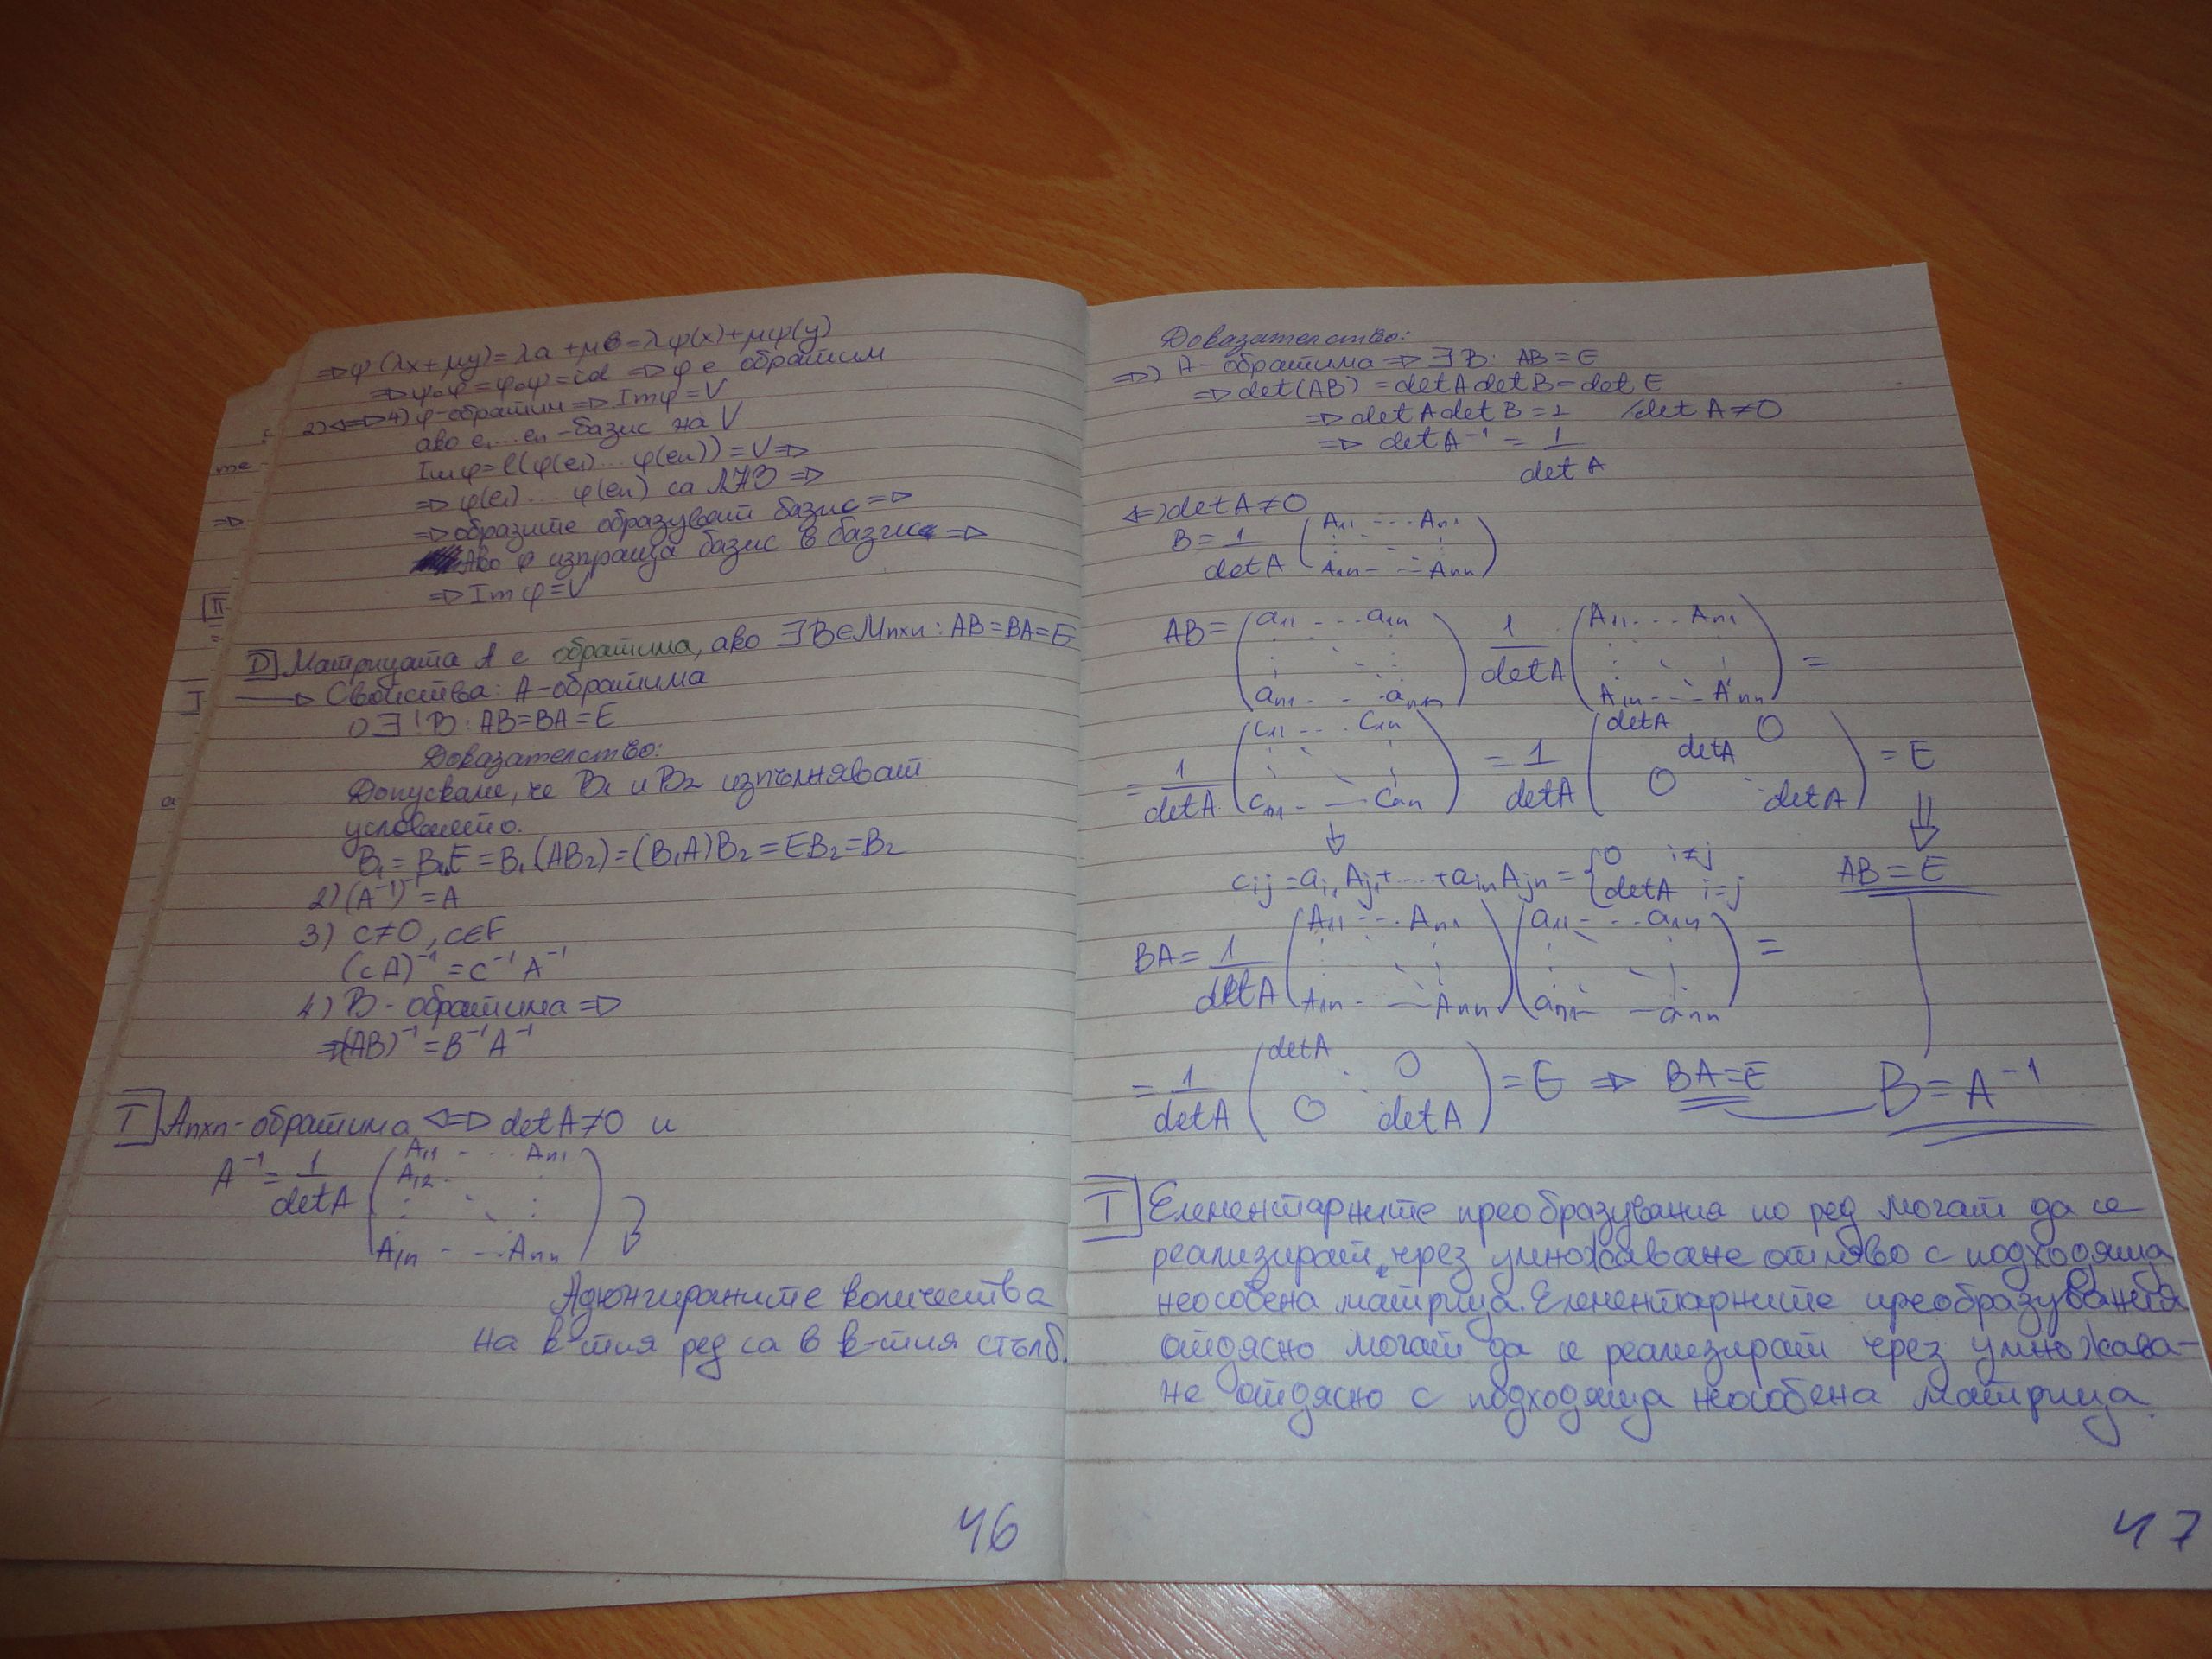 ⇒ φ(λx+μy)=λa+μb=λφ(x)+μφ(y)
⇒ ψ∘φ=φ∘ψ=id ⇒ φ е обратим
2)⇔4) φ-обратим ⇒ Imφ=V
ако e₁...eₙ-базис на V
Imφ=ℓ(φ(e₁)...φ(eₙ))=V⇒
⇒ φ(e₁)...φ(eₙ) са ЛНЗ ⇒
⇒ образите образуват базис ⇒
Ако φ изпраща базис в базис ⇒
⇒ Imφ=V
D Матрицата A е обратима, ако ∃B∈Mₙₓₙ: AB=BA=E
→ Свойства: A-обратима
1) ∃!B: AB=BA=E
Доказателство:
Допускаме, че B₁ и B₂ изпълняват
условието.
B₁=B₁E=B₁(AB₂)=(B₁A)B₂=EB₂=B₂
2) (A⁻¹)⁻¹=A
3) c≠0, c∈F
(cA)⁻¹=c⁻¹A⁻¹
4) B-обратима ⇒
⇒(AB)⁻¹=B⁻¹A⁻¹
T Aₙₓₙ-обратима ⇔ detA≠0 и
A⁻¹= 1/detA (A₁₁ - ... Aₙ₁
A₁₂
A₁ₙ - ... Aₙₙ)
Адюнгираните количества
на k-тия ред са в k-тия стълб.
46
Доказателство:
⇒) A-обратима ⇒ ∃B: AB=E
⇒ det(AB)=detAdetB=detE
⇒ detAdetB=1 /detA≠0
⇒ detA⁻¹= 1/detA
⇐) detA≠0
B= 1/detA (A₁₁ --- Aₙ₁
A₁ₙ - --- Aₙₙ)
AB= (a₁₁ --- a₁ₙ
aₙ₁ --- aₙₙ) 1/detA (A₁₁ ... Aₙ₁
A₁ₙ --- Aₙₙ) =
= 1/detA (c₁₁ --- c₁ₙ
cₙ₁ --- cₙₙ) = 1/detA (detA 0
detA
0 detA) = E
⇓
cᵢⱼ=aᵢ₁Aⱼ₁+...+aᵢₙAⱼₙ= {0 i≠j
detA i=j
AB=E
BA= 1/detA (A₁₁ --- Aₙ₁
A₁ₙ --- Aₙₙ) (a₁₁ --- a₁ₙ
aₙ₁ --- aₙₙ) =
= 1/detA (detA 0
0 detA) = E ⇒ BA=E B=A⁻¹
T Елементарните преобразувания по ред могат да се
реализират чрез умножаване отляво с подходяща
неособена матрица. Елементарните преобразувания
отдясно могат да се реализират чрез умножава-
не отдясно с подходяща неособена матрица.
47